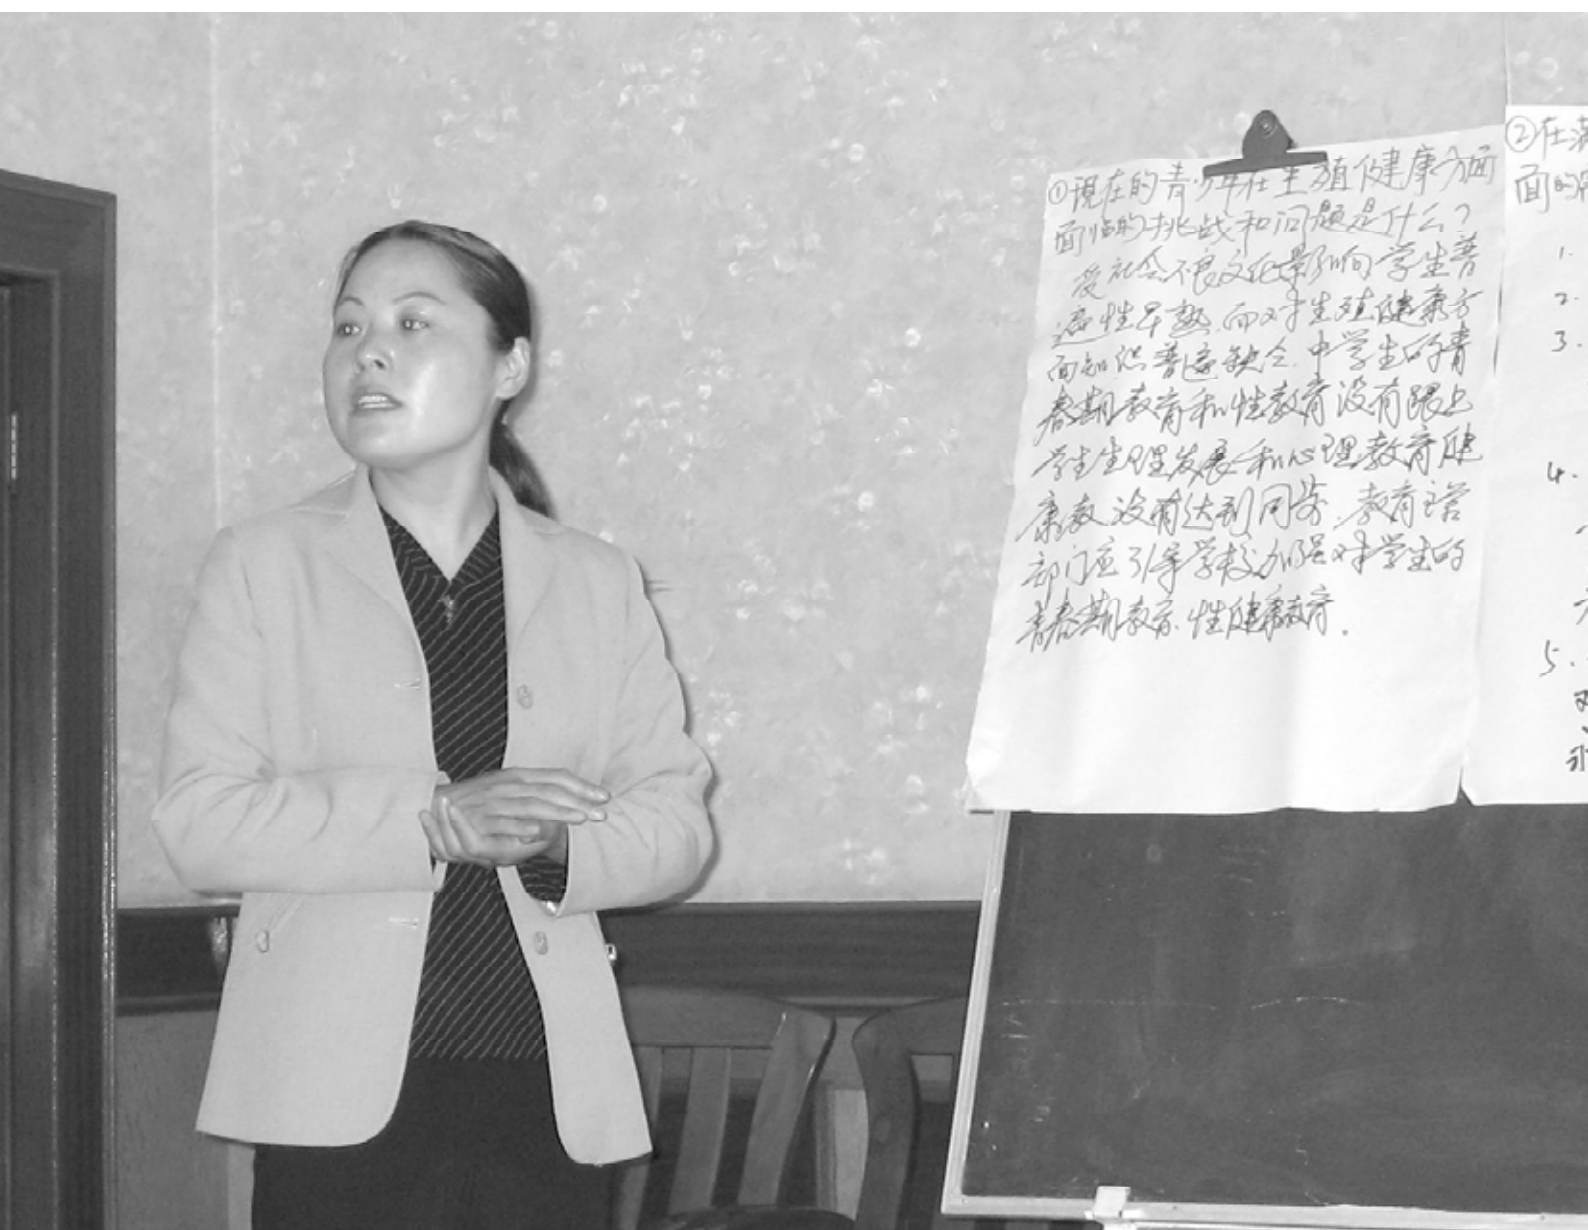 ①现在的青少年在生殖健康方面
面临的挑战和问题是什么？
受社会不良文化影响学生普
遍性早熟，而对生殖健康方
面知识普遍缺乏，中学生的青
春期教育和性教育没有跟上
学生生理发展和心理教育健
康教 没有达到同步，教育主管
部门应引导学校加强对学生的
青春期教育、性健康教育。
②在满
面的
1.
2.
3.
4.
5.